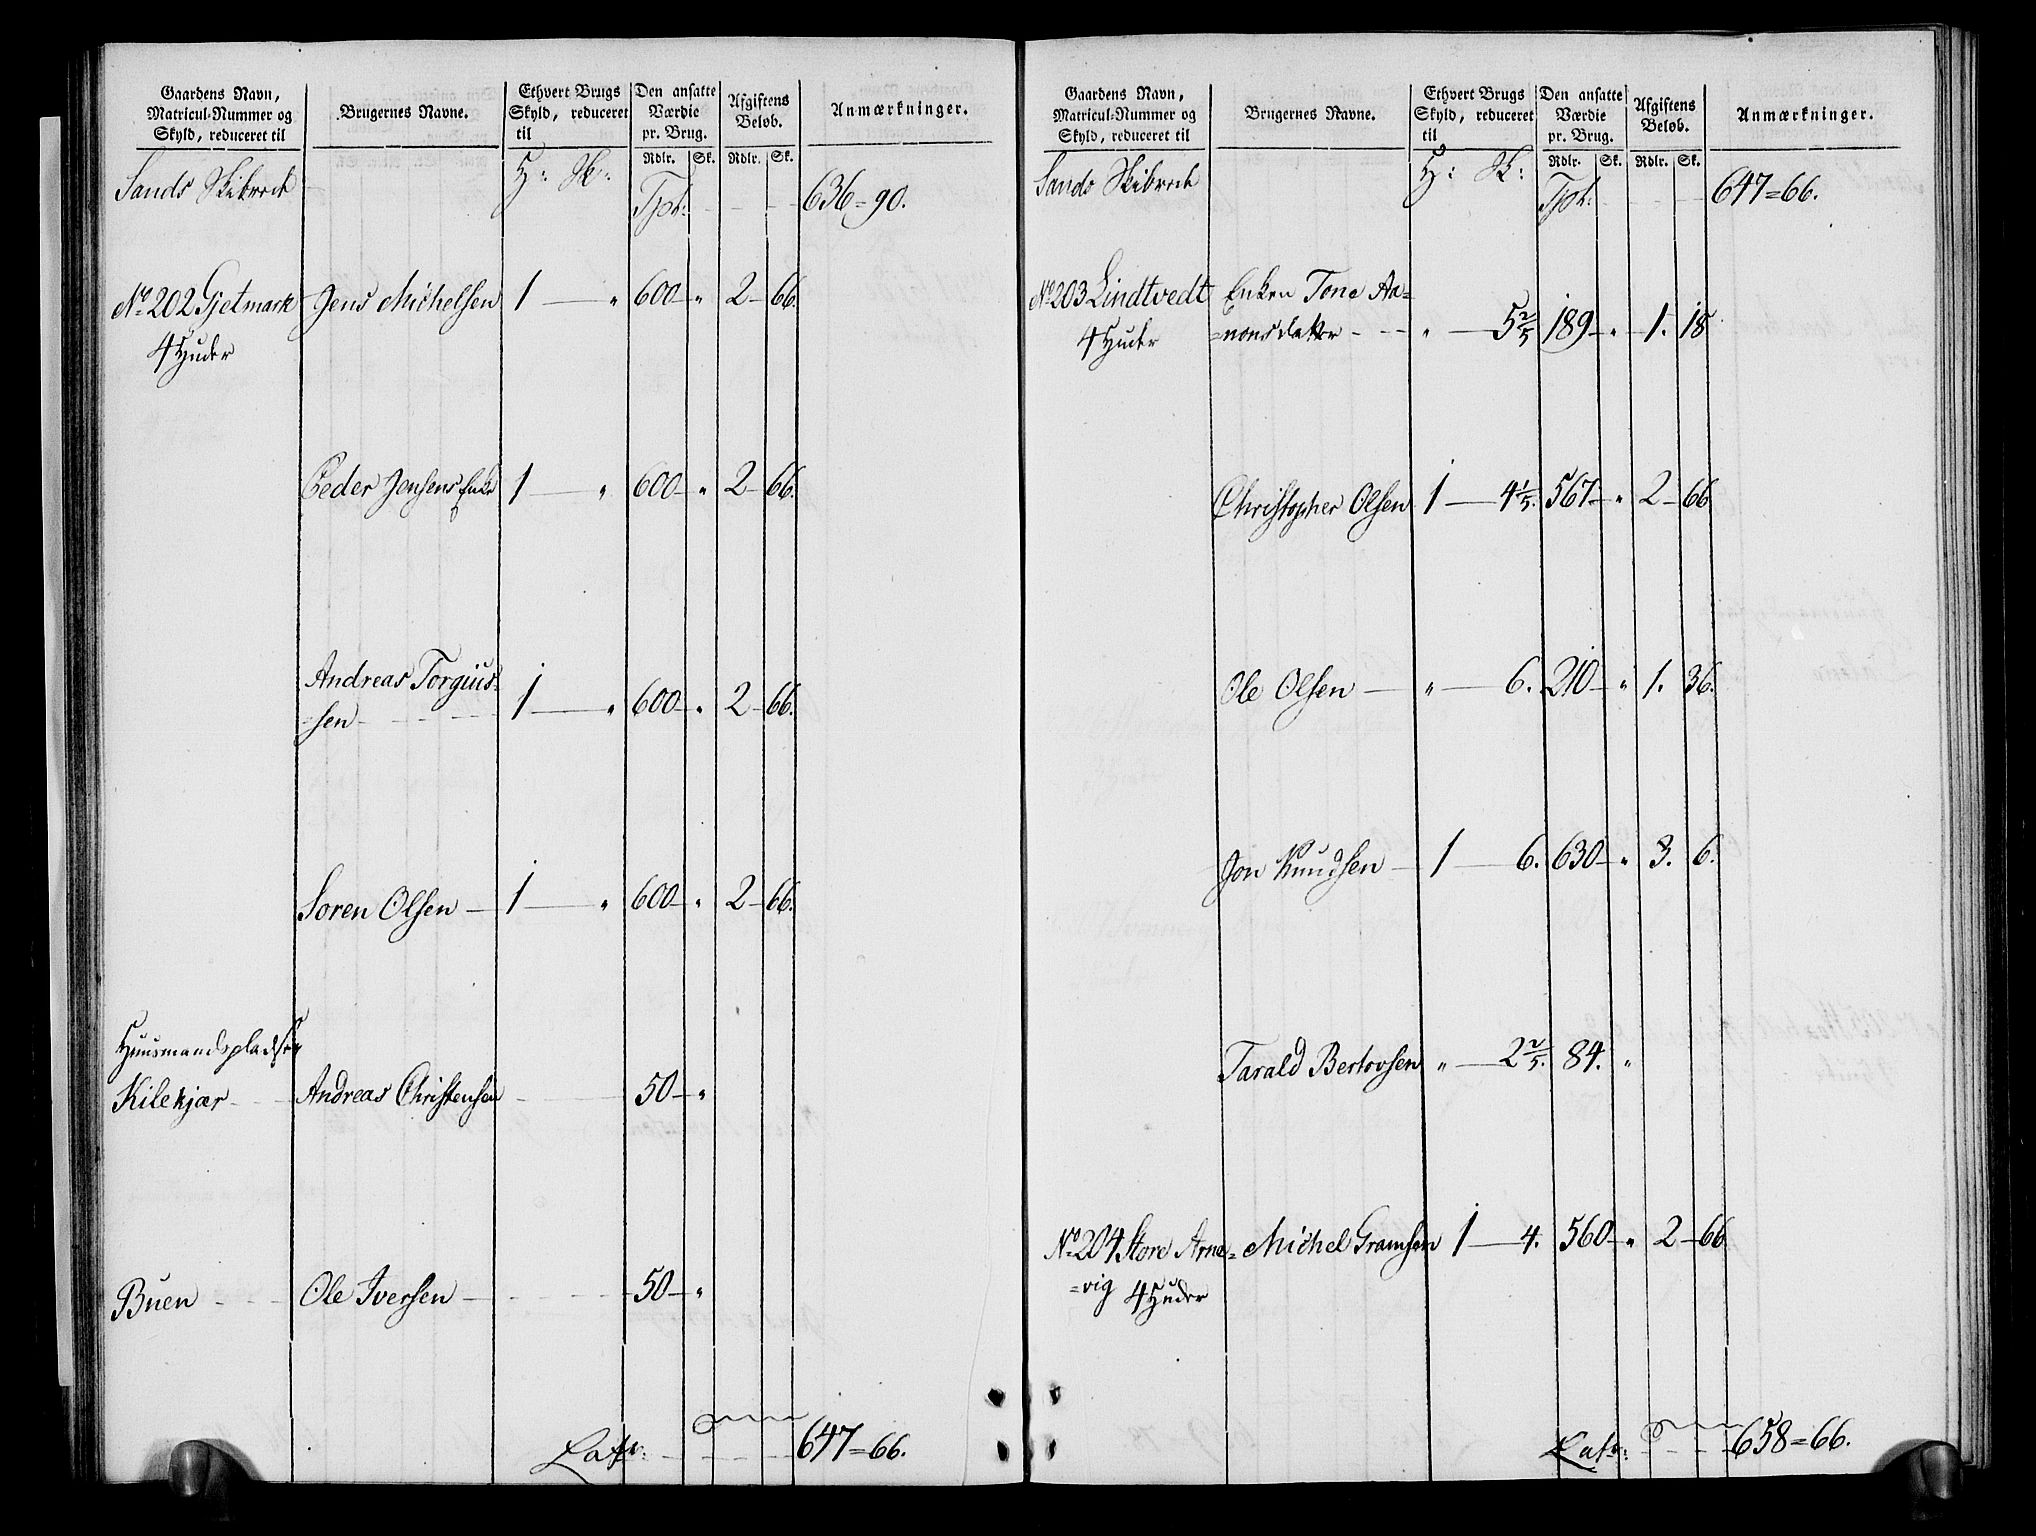 Gaardens Navn, Matricul-Nummer og Skyld, reduceret til | Brugernes Navne. | Ethvert Brugs Skyld, reduceret til | Den ansatte Værdie pr. Brug. | Afgiftens Beløb. | Anmærkninger.
Rdlr. Sk. Rdlr. Sk.
Sands Skibrede H: Sk:
Tpt: 636=90.
No 202 Gjetmark Jens Michelsen 1 — " 600 " 2 66.
4 Huder
Peder Jensens Enke 1 — " 600 " 2 66.
Andreas Torgius=
=sen 1 — " 600 " 2 66.
Soren Olsen 1 — " 600 " 2 66.
Huusmandspladser
Kilekjær Andreas Christensen 50 "
Buen Ole Iversen 50 "
Latr: 647=66.
Gaardens Navn, Matricul-Nummer og Skyld, reduceret til | Brugernes Navne. | Ethvert Brugs Skyld, reduceret til | Den ansatte Værdie pr. Brug. | Afgiftens Beløb. | Anmærkninger.
Rdlr. Sk. Rdlr. Sk.
Sands Skibrede H: Sk:
Tpt: 647=66.
No 203 Lindtvedt Enken Tone Aa=
4 Huder =nonsdatter " — 5 2/5 189 " 1. 18
Christopher Olsen 1 — 4 1/5. 567 " 2 66
Ole Olsen " — 6. 210 " 1. 36.
Jon Knudsen 1 — 6. 630 " 3. 6.
Tarald Bertovsen " — 2 2/5. 84. "
No 204 Store Arne= Michel Gramsen 1 — 4. 560 " 2 66
=vig 4 Huder
Latr: 658=66.